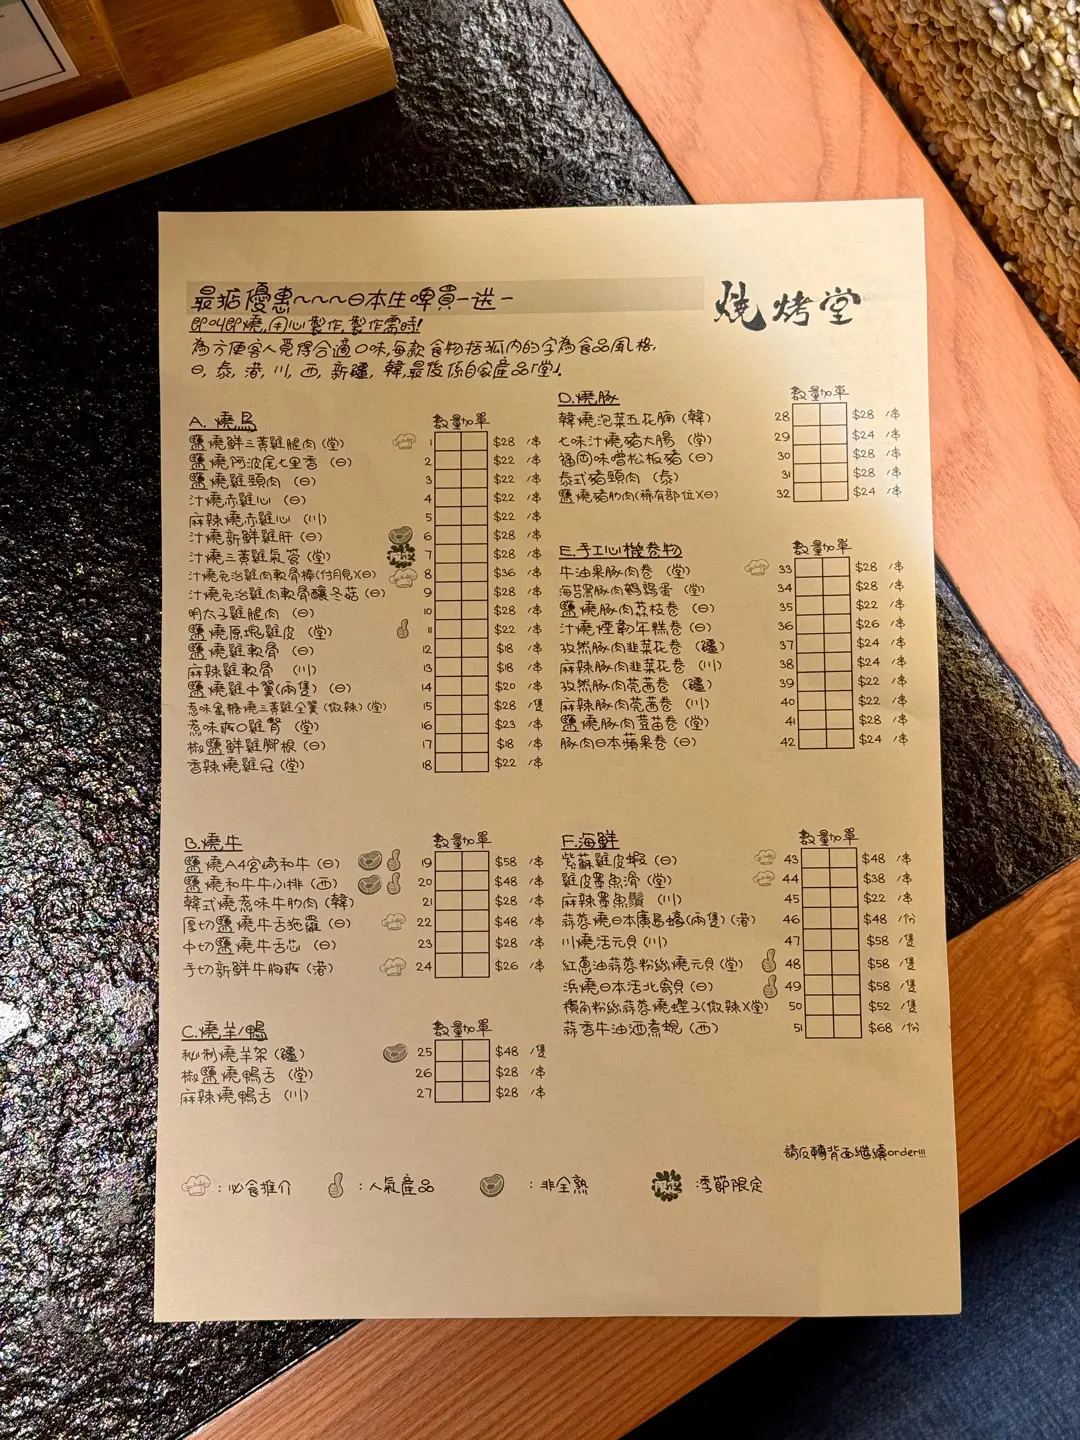 最抵優惠~~~日本生啤買一送一
燒烤堂
即叫即燒,用心製作,製作需時!
為方便客人覓得合適口味,每款食物括弧內的字為食品風格,
日, 泰, 港, 川, 西, 新疆, 韓,最後係自家產品「堂」.
A. 燒鳥 數量加單
鹽燒鮮三黃雞腿肉 (堂) 1 $28 /串
鹽燒阿波尾七里香 (日) 2 $22 /串
鹽燒雞頸肉 (日) 3 $22 /串
汁燒赤雞心 (日) 4 $22 /串
麻辣燒赤雞心 (川) 5 $22 /串
汁燒新鮮雞肝 (日) 6 $28 /串
汁燒三黃雞氣管 (堂) 7 $28 /串
汁燒免治雞肉軟骨棒(付月見)(日) 8 $36 /串
汁燒免治雞肉軟骨釀冬菇 (日) 9 $28 /串
明太子雞腿肉 (日) 10 $28 /串
鹽燒原塊雞皮 (堂) 11 $22 /串
鹽燒雞軟骨 (日) 12 $18 /串
麻辣雞軟骨 (川) 13 $18 /串
鹽燒雞中翼(兩隻) (日) 14 $20 /串
惹味蜜糖燒三黃雞全翼 (微辣) (堂) 15 $28 /隻
惹味爽口雞腎 (堂) 16 $23 /串
椒鹽鮮雞腳根 (日) 17 $18 /串
香辣燒雞冠 (堂) 18 $22 /串
B.燒牛 數量加單
鹽燒A4宮崎和牛 (日) 19 $58 /串
鹽燒和牛牛小排 (西) 20 $48 /串
韓式燒惹味牛肋肉 (韓) 21 $28 /串
厚切鹽燒牛舌拖羅 (日) 22 $48 /串
中切鹽燒牛舌芯 (日) 23 $28 /串
手切新鮮牛胸爽 (港) 24 $26 /串
C.燒羊/鴨 數量加單
秘制燒羊架 (疆) 25 $48 /隻
椒鹽燒鴨舌 (堂) 26 $28 /串
麻辣燒鴨舌 (川) 27 $28 /串
D.燒豚 數量加單
韓燒泡菜五花腩 (韓) 28 $28 /串
七味汁燒豬大腸 (堂) 29 $24 /串
福岡味噌松板豬 (日) 30 $28 /串
泰式豬頸肉 (泰) 31 $28 /串
鹽燒豬肋肉(稀有部位)(日) 32 $24 /串
E.手工心機卷物 數量加單
牛油果豚肉卷 (堂) 33 $28 /串
海苔黑豚肉鵪鶉蛋 (堂) 34 $28 /串
鹽燒豚肉荔枝卷 (日) 35 $22 /串
汁燒煙韌年糕卷 (日) 36 $26 /串
孜然豚肉韭菜花卷 (疆) 37 $24 /串
麻辣豚肉韭菜花卷 (川) 38 $24 /串
孜然豚肉芫茜卷 (疆) 39 $22 /串
麻辣豚肉芫茜卷 (川) 40 $22 /串
鹽燒豚肉荳苗卷 (堂) 41 $28 /串
豚肉日本蘋果卷 (日) 42 $24 /串
F.海鮮 數量加單
紫蘇雞皮蝦 (日) 43 $48 /串
雞皮墨魚滑 (堂) 44 $38 /串
麻辣墨魚鬚 (川) 45 $22 /串
蒜蓉燒日本廣島蠔(兩隻) (港) 46 $48 /份
川燒活元貝 (川) 47 $58 /隻
紅蔥油蒜蓉粉絲燒元貝 (堂) 48 $58 /隻
浜燒日本活北寄貝 (日) 49 $58 /隻
欖角粉絲蒜蓉燒蟶子(微辣)(堂) 50 $52 /隻
蒜香牛油酒煮蜆 (西) 51 $68 /份
請反轉背面繼續order!!!
:必食推介 :人氣產品 :非全熟 季節限定